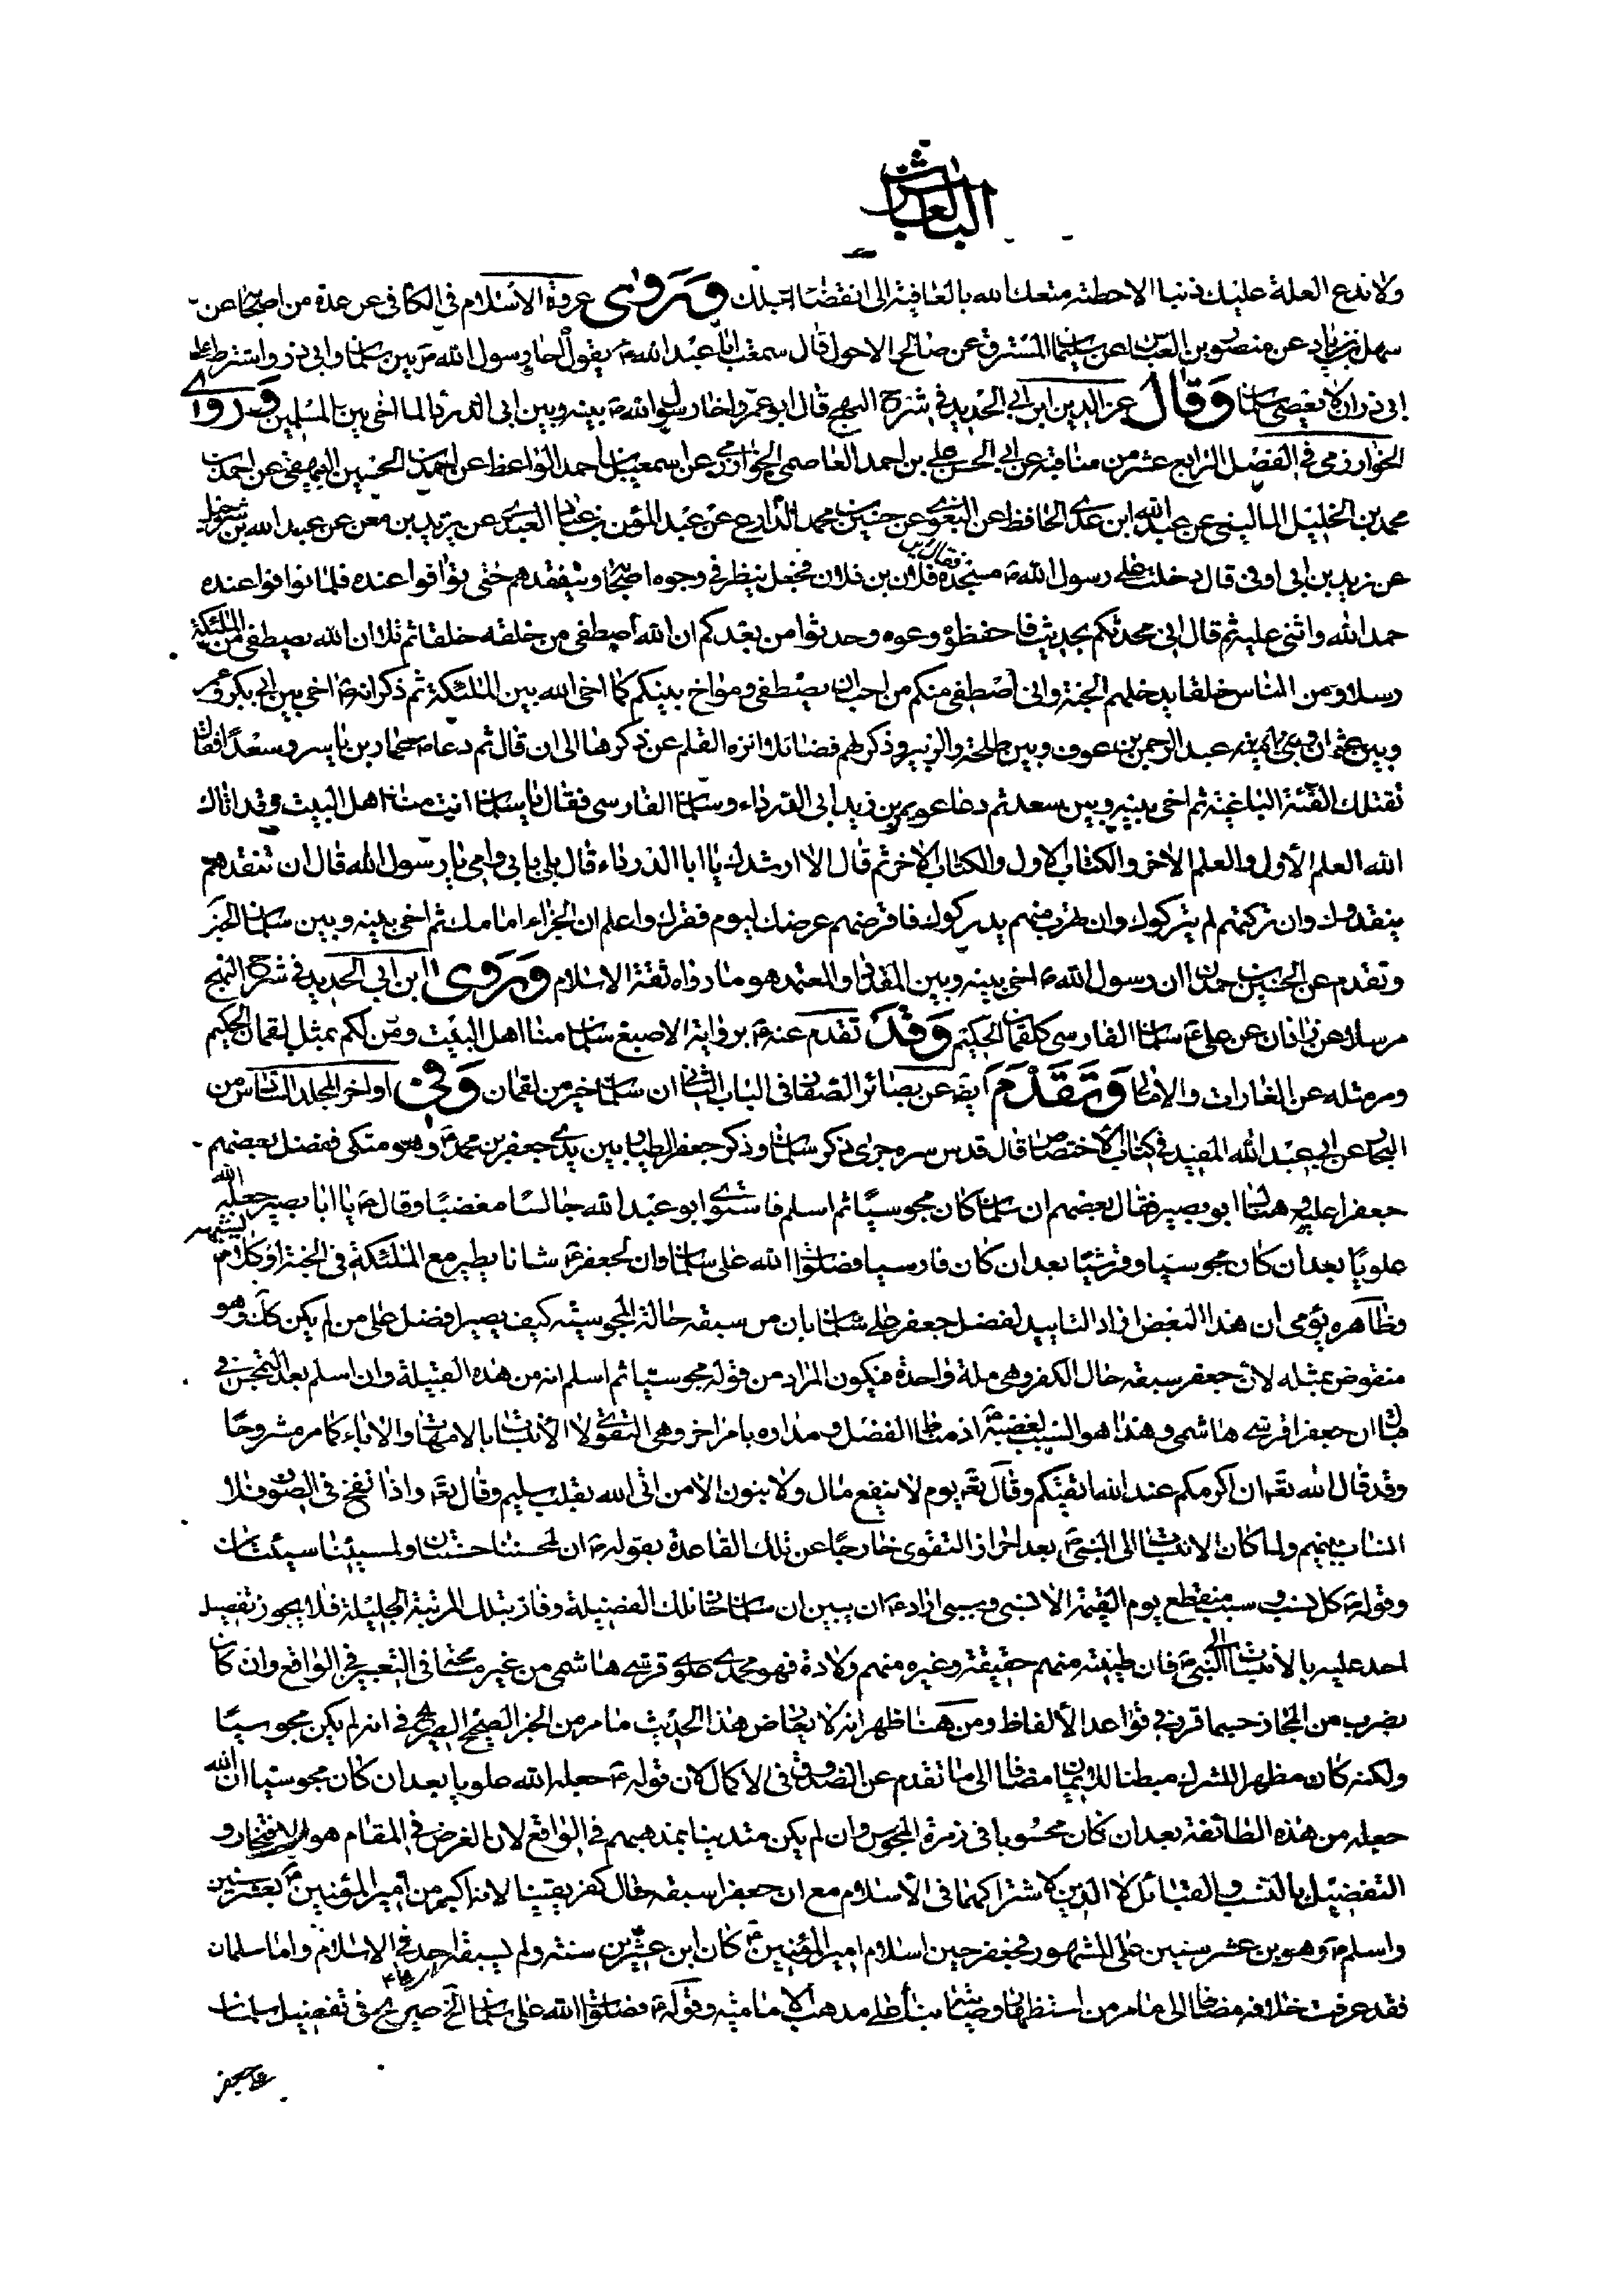 الباب العاشر
ولا تدع العلة عليك ذنبا الا حطته متعك الله بالعافية الى انقضاء اجلك وروى عروة الاسلام في الكافي عن عدة من اصحابنا عن
سهل بن زياد عن منصور بن العباس عن سليمان المسترق عن صالح الاحول قال سمعت ابا عبد الله ع يقول اخا رسول الله ص بين سلمان وابي ذر واشترط على
ابي ذر ان لا يعصي سلمان وقال عز الدين ابن ابي الحديد في شرح النهج قال ابو عمر واخا رسول الله ص بينه وبين ابي الدرداء لما اخى بين المسلمين وروى
الخوارزمي في الفصل الرابع عشر من مناقبه عن ابي الحسن علي بن احمد العاصمي الخوارزمي عن اسمعيل بن احمد الواعظ عن احمد بن الحسين البيهقي عن احمد بن
محمد بن الخليل الماليني عن عبد الله ابن عدي الحافظ عن البغوي عن حسين بن محمد الذارع عن عبد المؤمن بن عباد العبدي عن يزيد بن معن عن عبد الله بن شرحبيل
عن زيد بن ابي اوفى قال دخلت على رسول الله ص مسجده فقال اين فلان بن فلان فجعل ينظر في وجوه اصحابه ويتفقدهم حتى توافوا عنده فلما توافوا عنده
حمد الله واثنى عليه ثم قال اني محدثكم بحديث فاحفظوه وعوه وحدثوا من بعدكم ان الله اصطفى من خلقه خلقا ثم تلا ان الله يصطفي من الملئكة
رسلا ومن الناس خلقا يدخلهم الجنة واني اصطفي منكم من احب ان يصطفي ومواخ بينكم كما اخى الله بين الملئكة ثم ذكر انه ص اخى بين ابي بكر وعمر
وبين عثمان وبين عبد الرحمن بن عوف وبين طلحة والزبير وذكر لهم فضائل انزه القلم عن ذكرها الى ان قال ثم دعا ص عمار بن ياسر وسعدا فقال
تقتلك الفئة الباغية ثم اخى بينه وبين سعد ثم دعا عويمر بن زيد ابي الدرداء وسلمان الفارسي فقال يا سلمان انت منا اهل البيت وقد اتاك
الله العلم الاول والعلم الاخر والكتاب الاول والكتاب الاخر ثم قال الا ارشدك يا ابا الدرداء قال بلى بابي وامي يا رسول الله قال ان تنقدهم
ينقدوك وان تركتهم لم يتركوك وان هربت منهم يدركوك فاقرضهم عرضك ليوم فقرك واعلم ان الجزاء امامك ثم اخى بينه وبين سلمان الخبر
وتقدم عن الحسين بن حمدان ان رسول الله ص اخى بينه وبين المقداد والمعتمد هو ما رواه ثقة الاسلام وروى ابن ابي الحديد في شرح النهج
مرسلا عن زاذان عن علي ع سلمان الفارسي كلقمان الحكيم وقد تقدم عنه ع برواية الاصبغ سلمان منا اهل البيت ومن لكم بمثل لقمان الحكيم
ومر مثله عن الغارات والامالي وتقدم ايضا عن بصائر الصفار في الباب الثاني ان سلمان خير من لقمان وفي اواخر المجلد السادس من
البحار عن ابي عبد الله المفيد في كتاب الاختصاص قال قدس سره جرى ذكر سلمان وذكر جعفر الطيار بين يدي جعفر بن محمد ع وهو متكئ ففضل بعضهم
جعفرا عليه وهناك ابو بصير فقال بعضهم ان سلمان كان مجوسيا ثم اسلم فاستوى ابو عبد الله جالسا مغضبا وقال ع يا ابا بصير جعله الله
علويا بعد ان كان مجوسيا وقرشيا بعد ان كان فارسيا فصلوات الله على سلمان وان لجعفر ع شانا يطير مع الملئكة في الجنة او كلام يشبهه
وظاهره يومى ان هذا البعض اراد التاييد لفضل جعفر على سلمان بان من سبقه حالة المجوسية كيف يصير افضل على من لم يكن كك وهو
منقوض بمثله لان جعفر سبقه حال الكفر وهي ملة واحدة فيكون المراد من قوله مجوسيا ثم اسلم انه من هذه القبيلة وان اسلم بعد التمجس في
قبال ان جعفرا قرشي هاشمي وهذا هو السبب لغضبه ع اذ مناط الفضل ومداره بامر اخر وهي التقوى لا الانتساب بالامهات والاباء كما مر مشروحا
وقد قال الله تع ان اكرمكم عند الله اتقيكم وقال تع يوم لا ينفع مال ولا بنون الا من اتى الله بقلب سليم وقال تع واذا نفخ في الصور فلا
انساب بينهم ولما كان الانتساب الى النبي ص بعد احراز التقوى خارجا عن تلك القاعدة بقوله ع ان لمحسننا حسنتان ولمسيئنا سيئتان
وقوله ص كل نسب وسبب منقطع يوم القيمة الا نسبي وسببي اراد ع ان يبين ان سلمان حاز تلك الفضيلة وفاز بتلك المرتبة الجليلة فلا يجوز تفضيل
احد عليه بالانتساب الى النبي ص فان طينته منهم حقيقة وغيره منهم ولادة فهو محمدي علوي قرشي هاشمي من غير في التعبير في الواقع وان كان
بضرب من المجاز حسبما قرر في قواعد الالفاظ ومن هنا ظهر انه لا يعارض هذا الحديث ما مر من الخبر الصحيح الصريح في انه لم يكن مجوسيا
ولكنه كان مظهرا للشرك مبطنا للايمان مضافا الى ما تقدم عن الصدوق في الاكمال لان قوله ع جعله الله علويا بعد ان كان مجوسيا ان الله
جعله من هذه الطائفة بعد ان كان محسوبا في زمرة المجوس وان لم يكن متدينا بمذهبهم في الواقع لان الغرض في المقام هو الافتخار و
التفضيل بالنسب والقبائل لا الدين لاشتراكهما في الاسلام مع ان جعفرا سبقه حال كفر يقينا لانه اكبر من امير المؤمنين ع بعشر سنين
واسلم ع وهو بن عشر سنين على المشهور فجعفر حين اسلام امير المؤمنين ع كان ابن عشرين سنة ولم يسبقه احد في الاسلام واما سلمان
فقد عرفت خلافه مضافا الى ما مر من استظهار على مذهب الامامية وقوله ع فصلوات الله على سلمان الخ صريح في تفضيل سلمان
على جعفر